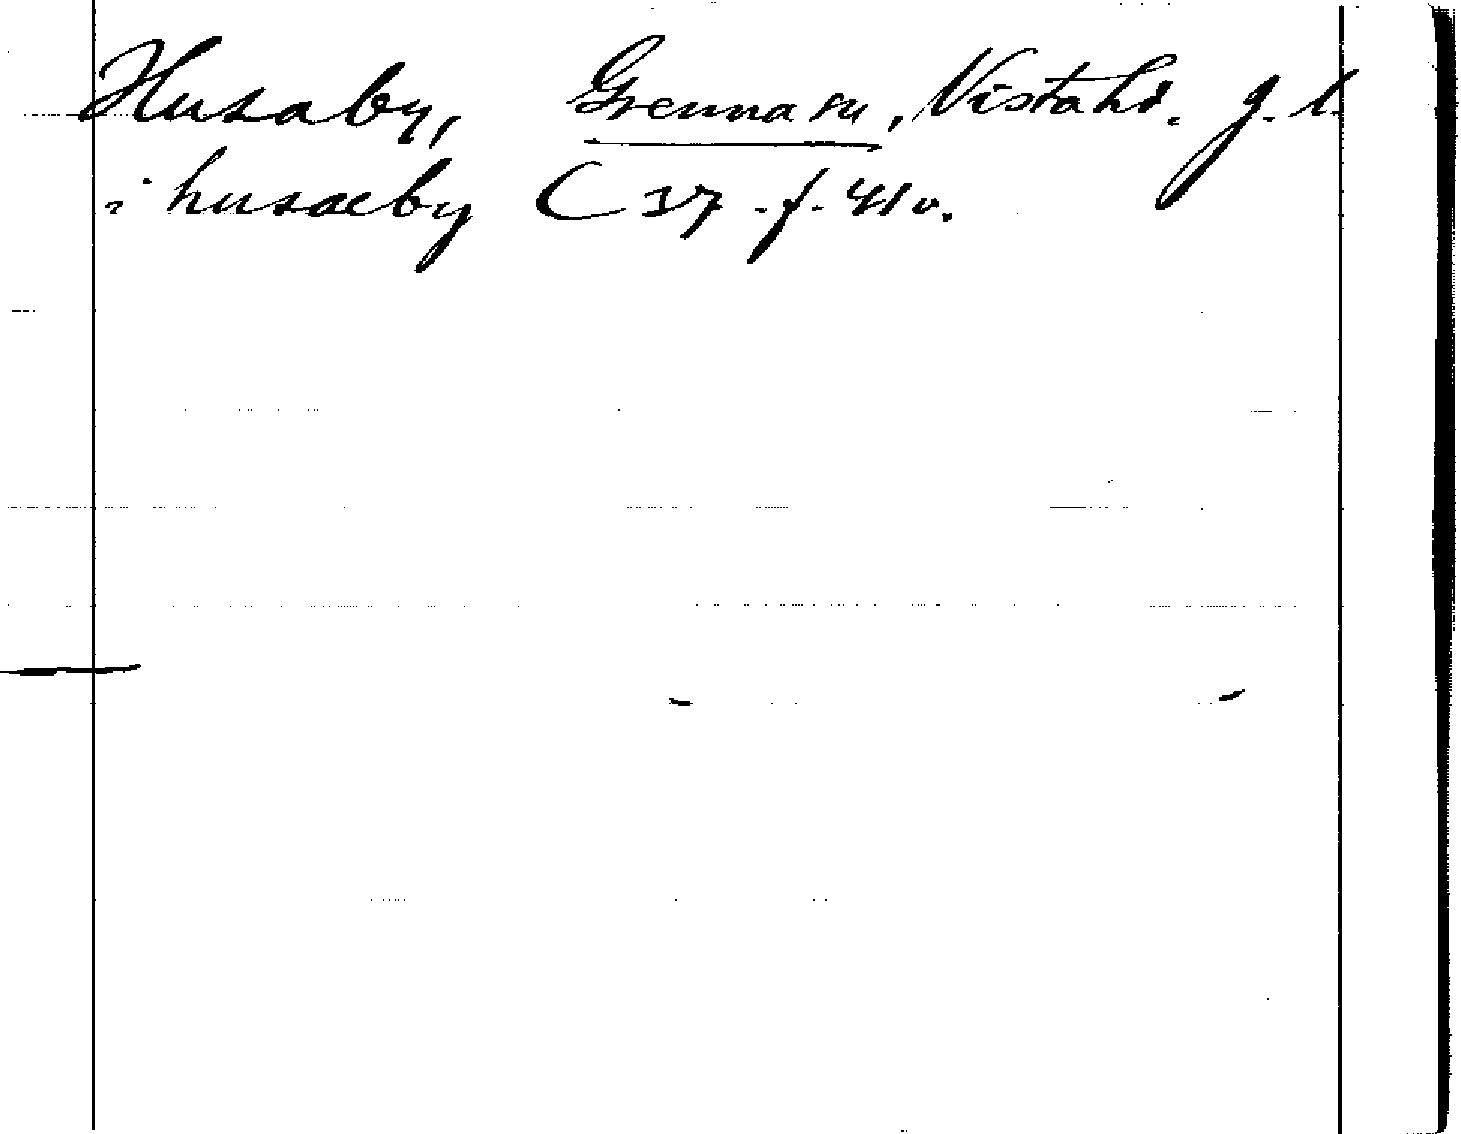 Husaby, Grenna sn, Vista hd. J. l.
i husæby C 37 . f. 41 v.